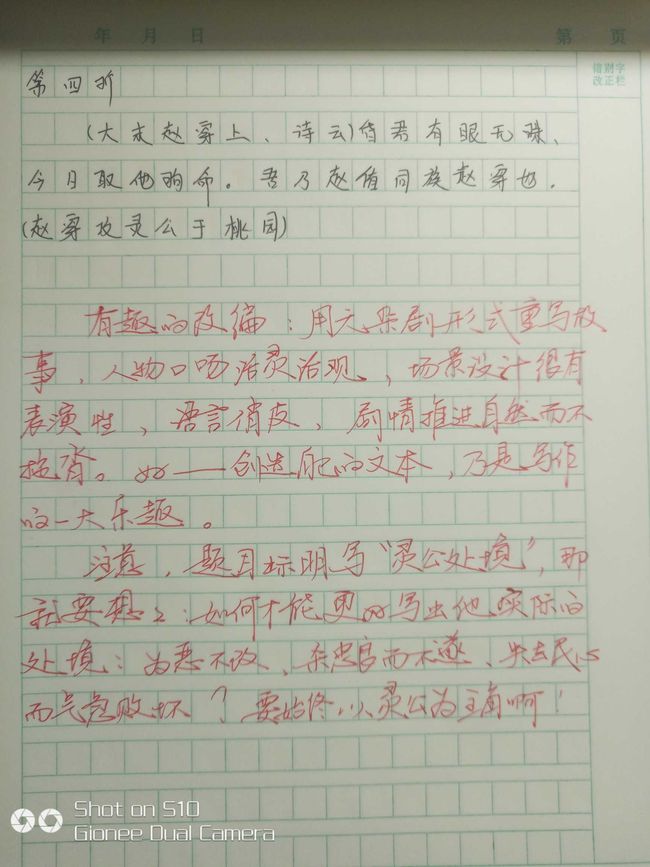 年 月 日 第 页
错别字
改正栏
第四折
(大末赵穿上、诗云)昏君有眼无珠、
今日取他狗命。吾乃赵盾同族赵穿也.
(赵穿攻灵公于桃园)
有趣的改编:用元杂剧形式重写故
事,人物口吻活灵活现,场景设计很有
表演性,语言俏皮,剧情推进自然而不
拖沓。——创造自己的文本,乃是写作
的一大乐趣。
注意,题目标明写"灵公处境",那
就要想:如何才能更好写出他实际的
处境:为恶不改、杀忠臣而不遂、失去民心
而气急败坏?要始终以灵公为主角啊!
Shot on S10
Gionee Dual Camera